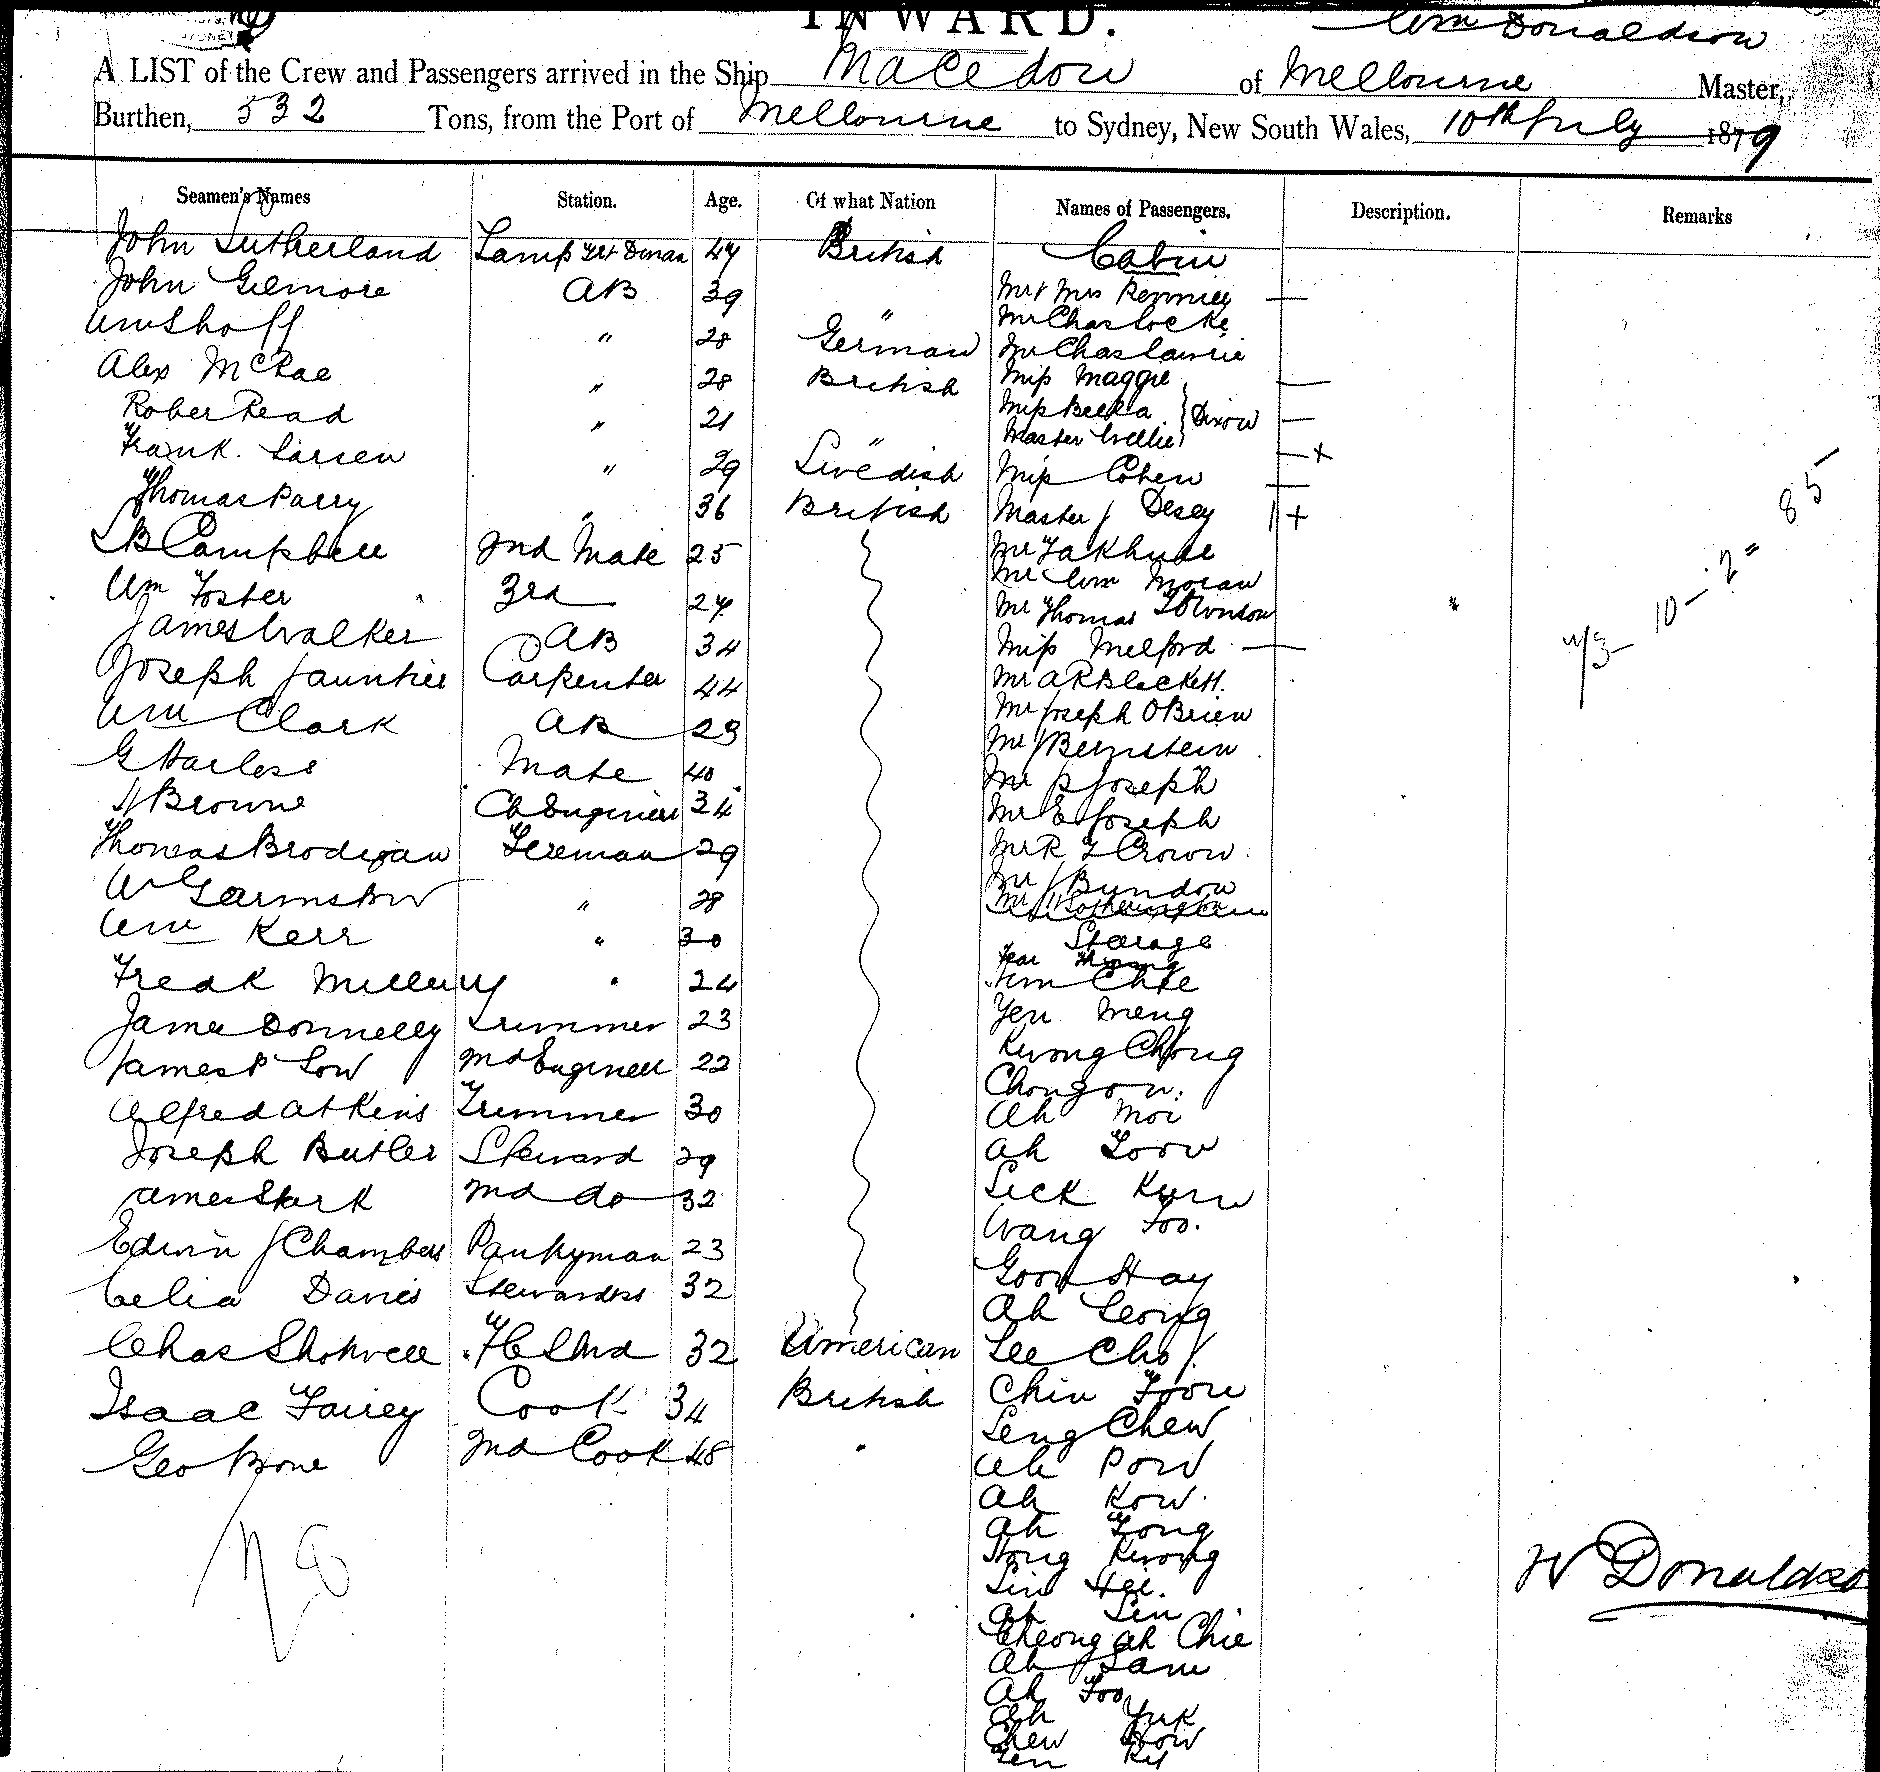 INWARD.
Wm Donaldson
A LIST of the Crew and Passengers arrived in the Ship Macedon of Melbourne Master,
Burthen, 532 Tons, from the Port of Melbourne to Sydney, New South Wales, 10th July 1879
Seamen's Names Station. Age. Of what Nation Names of Passengers. Description. Remarks
John Sutherland Lamp 44 British Cabin
John Gilmore AB 39 " Mr & Mrs
Wm Shoff " 28 German Mr Chas Locke
Mr Chas Lawrie
Alex McRae " 28 British Miss Maggie
Rober Read " 21 " Miss Bella Dixon
Master Willie
Frank Larsen " 29 Swedish Miss Cohen
Thomas Parry " 36 British Master J Desey
Campbell 2nd Mate 25 Mr
Mr Wm Moran
Wm Foster 3rd 24 Mr Thomas
James Walker AB 34 Miss Melford
Joseph Carpenter 44 Mr A R Blackett
Wm Clark AB 23 Mr Joseph O'Brien
G Harless Mate 40 Mr J Bernstein
Mr S Joseph
H Browne Ch Engineer 34 Mr E Joseph
Thomas Brodigan Fireman 29 Mr R
W Garmston " 28 Mr J Bundon
Wm Kerr " 30 Starage
Fredk " 24
James Donnelly Trimmer 23 Yen Meng
James P Low 2nd Engineer 22 Kwong Chong
Chongon
Alfred Atkins Trimmer 30 Ah Moi
Joseph Butler Steward 29 Ah
James Stark 2nd do 32 Sick
Wang Foo
Edwin J Chambers Pantryman 23 Goon Hay
Celia Davies Stewardess 32 Ah Leong
Chas Shotwell 32 American Lee Cho
Isaac Fairey Cook 34 British Chin Foon
Seng Chew
Geo Bone 2nd Cook 48 " Ah Pow
Ah Kow
Ah Fong
Hong Kwong
Sin Hee
Ah Sin
Cheong Ah Chie
Ah Sam
Ah Foo
Ah Yuk
Chew
10 - 2 " 85
W Donaldson